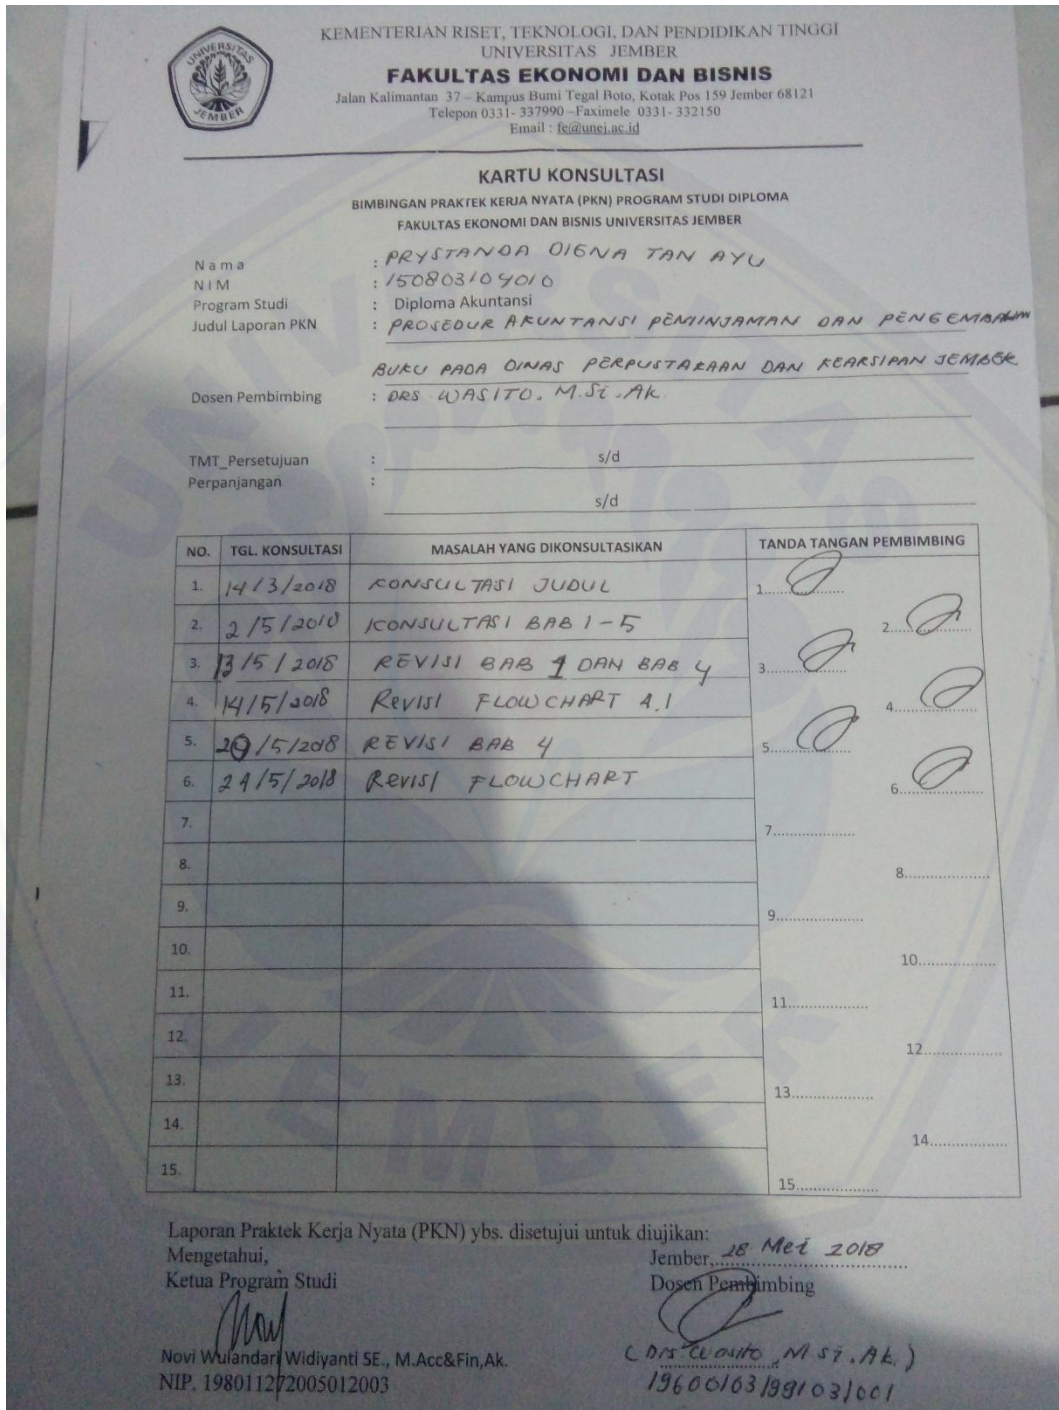 KEMENTERIAN RISET, TEKNOLOGI, DAN PENDIDIKAN TINGGI
UNIVERSITAS JEMBER
FAKULTAS EKONOMI DAN BISNIS
Jalan Kalimantan 37 – Kampus Bumi Tegal Boto, Kotak Pos 159 Jember 68121
Telepon 0331- 337990 –Faximele 0331- 332150
Email : fe@unej.ac.id
UNIVERSITAS
JEMBER
KARTU KONSULTASI
BIMBINGAN PRAKTEK KERJA NYATA (PKN) PROGRAM STUDI DIPLOMA
FAKULTAS EKONOMI DAN BISNIS UNIVERSITAS JEMBER
Nama : PRYSTANDA DIGNA TAN AYU
NIM : 150803104010
Program Studi : Diploma Akuntansi
Judul Laporan PKN : PROSEDUR AKUNTANSI PEMINJAMAN DAN
BUKU PADA DINAS PERPUSTAKAAN DAN KEARSIPAN JEMBER
Dosen Pembimbing : DRS WASITO, M.Si.,Ak
TMT_Persetujuan : s/d
Perpanjangan : s/d
NO. TGL. KONSULTASI MASALAH YANG DIKONSULTASIKAN TANDA TANGAN PEMBIMBING
1. 14/3/2018 KONSULTASI JUDUL 1..............
2. 2/5/2018 KONSULTASI BAB 1-5 2..............
3. 13/5/2018 REVISI BAB 1 DAN BAB 4 3..............
4. 14/5/2018 Revisi FLOWCHART 4.1 4..............
5. 20/5/2018 REVISI BAB 4 5..............
6. 24/5/2018 Revisi FLOWCHART 6..............
7. 7..............
8. 8..............
9. 9..............
10. 10..............
11. 11..............
12. 12..............
13. 13..............
14. 14..............
15. 15..............
Laporan Praktek Kerja Nyata (PKN) ybs. disetujui untuk diujikan:
Mengetahui, Jember, 28 Mei 2018
Ketua Program Studi Dosen Pembimbing
Novi Wulandari Widiyanti SE., M.Acc&Fin,Ak. (Drs. Wasito, M.Si.,Ak.)
NIP. 198011272005012003 196001031991031001
UNIVERSITAS
JEMBER